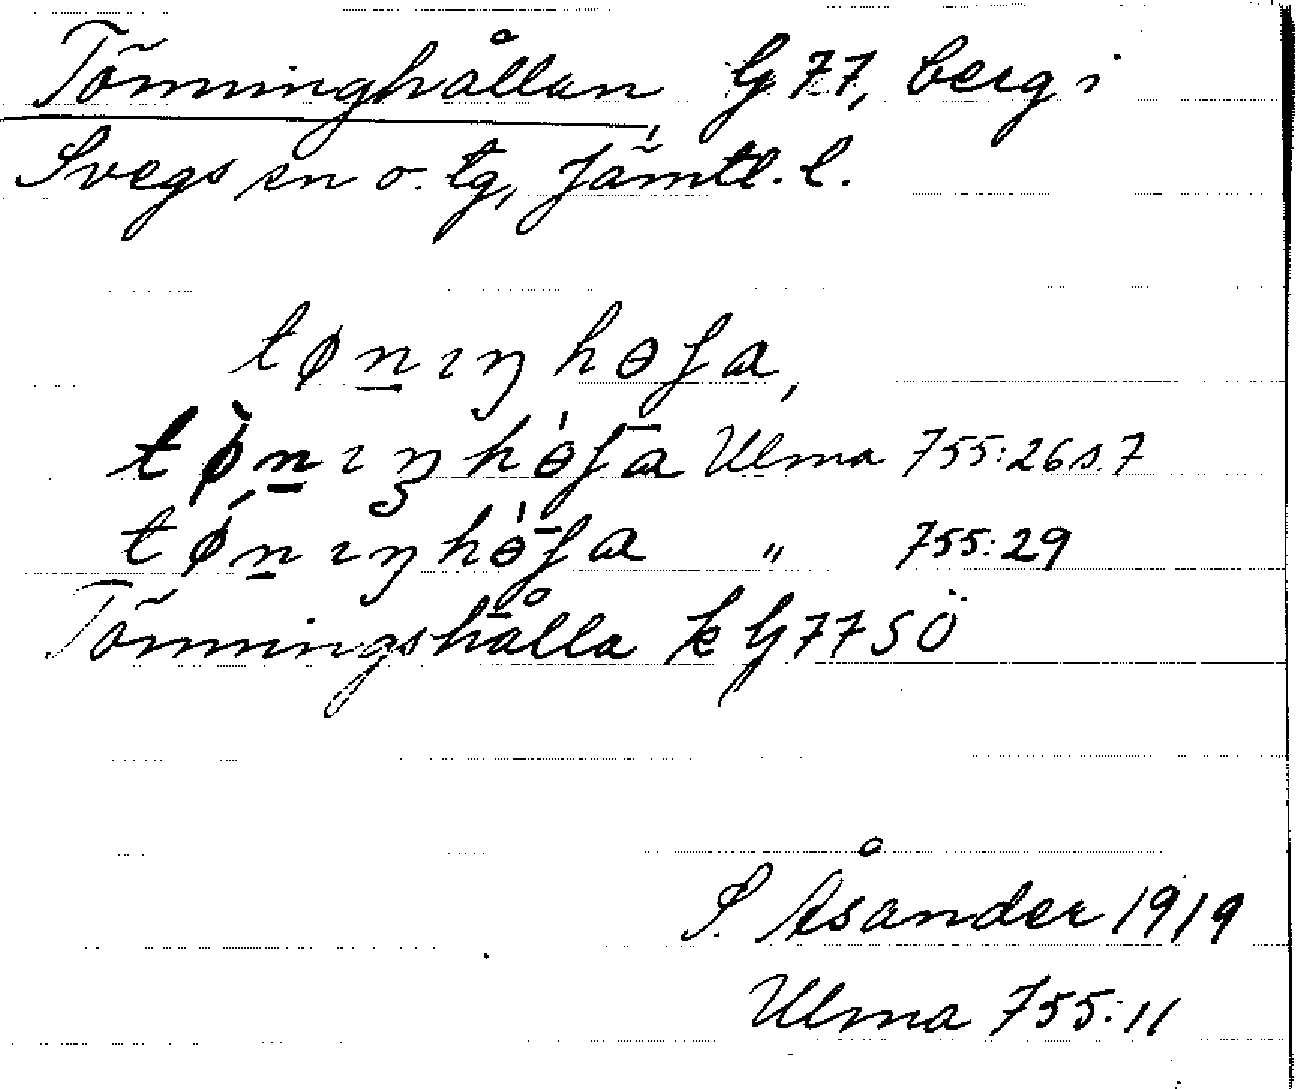 Tönninghållan G 77, berg i
Svegs sn o. tg, Jämtl. l.
tøn̲ıŋhɵʃa,
tø̀n̲ıŋhɵ̍ʃa Ulma 755:26 s. 7
tǿn̲ıŋhɵ̍ʃa " 755:29
Tönningshålla k G 77 SÖ
S. Åsander 1919
Ulma 755:11